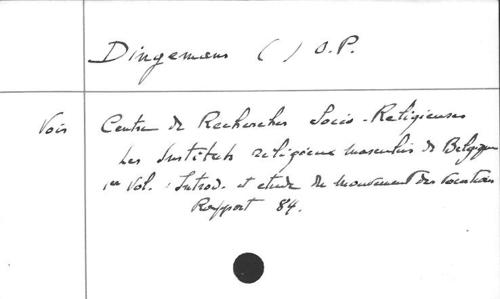 Dingemans ( ) O.P.
Vois Centre de Recherches Socio-Religieuses
Les Instituts religieux masculins de Belgique
1er Vol. : Introd. et etude du mouvement des vocations
Rapport 84.